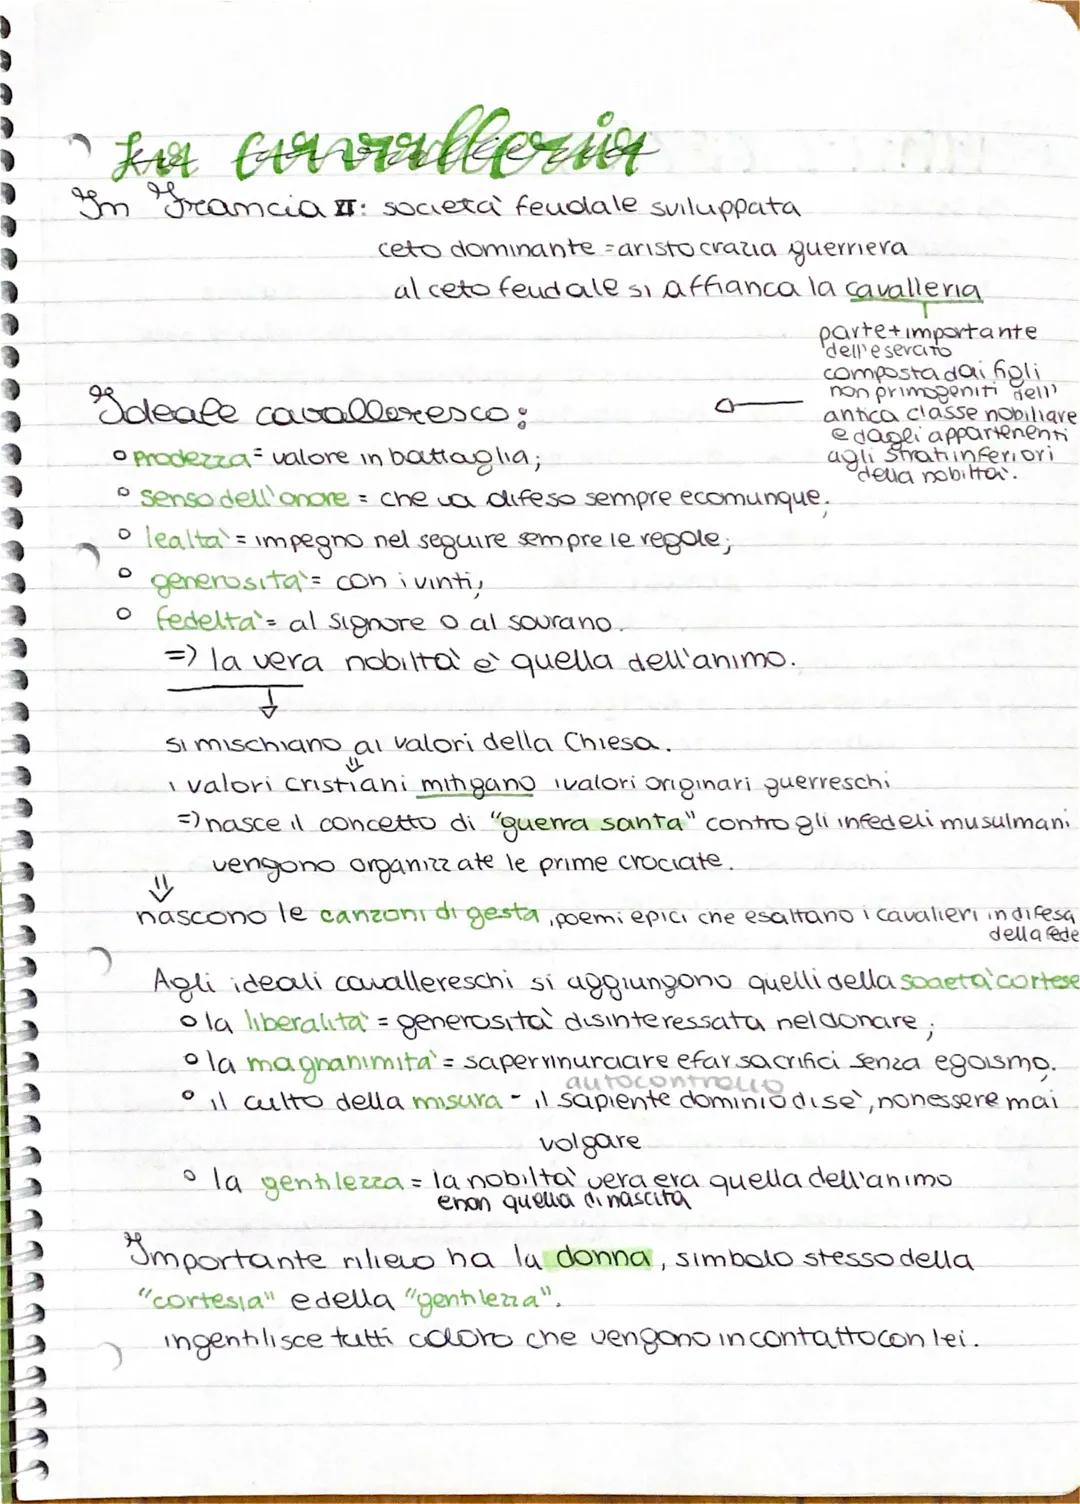 La cavalleria
In Francia XI: società feudale sviluppata
ceto dominante = aristocrazia guerriera
al ceto feudale si affianca la cavalleria
parte + importante
dell'esercito
composta dai figli
non primogeniti dell'
antica classe nobiliare
e dagli appartenenti
agli strati inferiori
della nobiltà.
Ideale cavalleresco:
prodezza = valore in battaglia;
senso dell'onore = che va difeso sempre e comunque;
lealtà = impegno nel seguire sempre le regole;
generosità = con i vinti;
fedeltà = al signore o al sovrano.
=> la vera nobiltà è quella dell'animo.
si mischiano ai valori della Chiesa.
i valori cristiani mitigano i valori originari guerreschi
=> nasce il concetto di "guerra santa" contro gli infedeli musulmani
vengono organizzate le prime crociate.
nascono le canzoni di gesta, poemi epici che esaltano i cavalieri in difesa
della fede
Agli ideali cavallereschi si aggiungono quelli della società cortese
la liberalità = generosità disinteressata nel donare;
la magnanimità = saper rinunciare e far sacrifici senza egoismo.
autocontrollo
il culto della misura - il sapiente dominio di sè, non essere mai
volgare
la gentilezza = la nobiltà vera era quella dell'animo
e non quella di nascita
Importante rilievo ha la donna, simbolo stesso della
"cortesia" e della "gentilezza".
ingentilisce tutti coloro che vengono in contatto con lei.